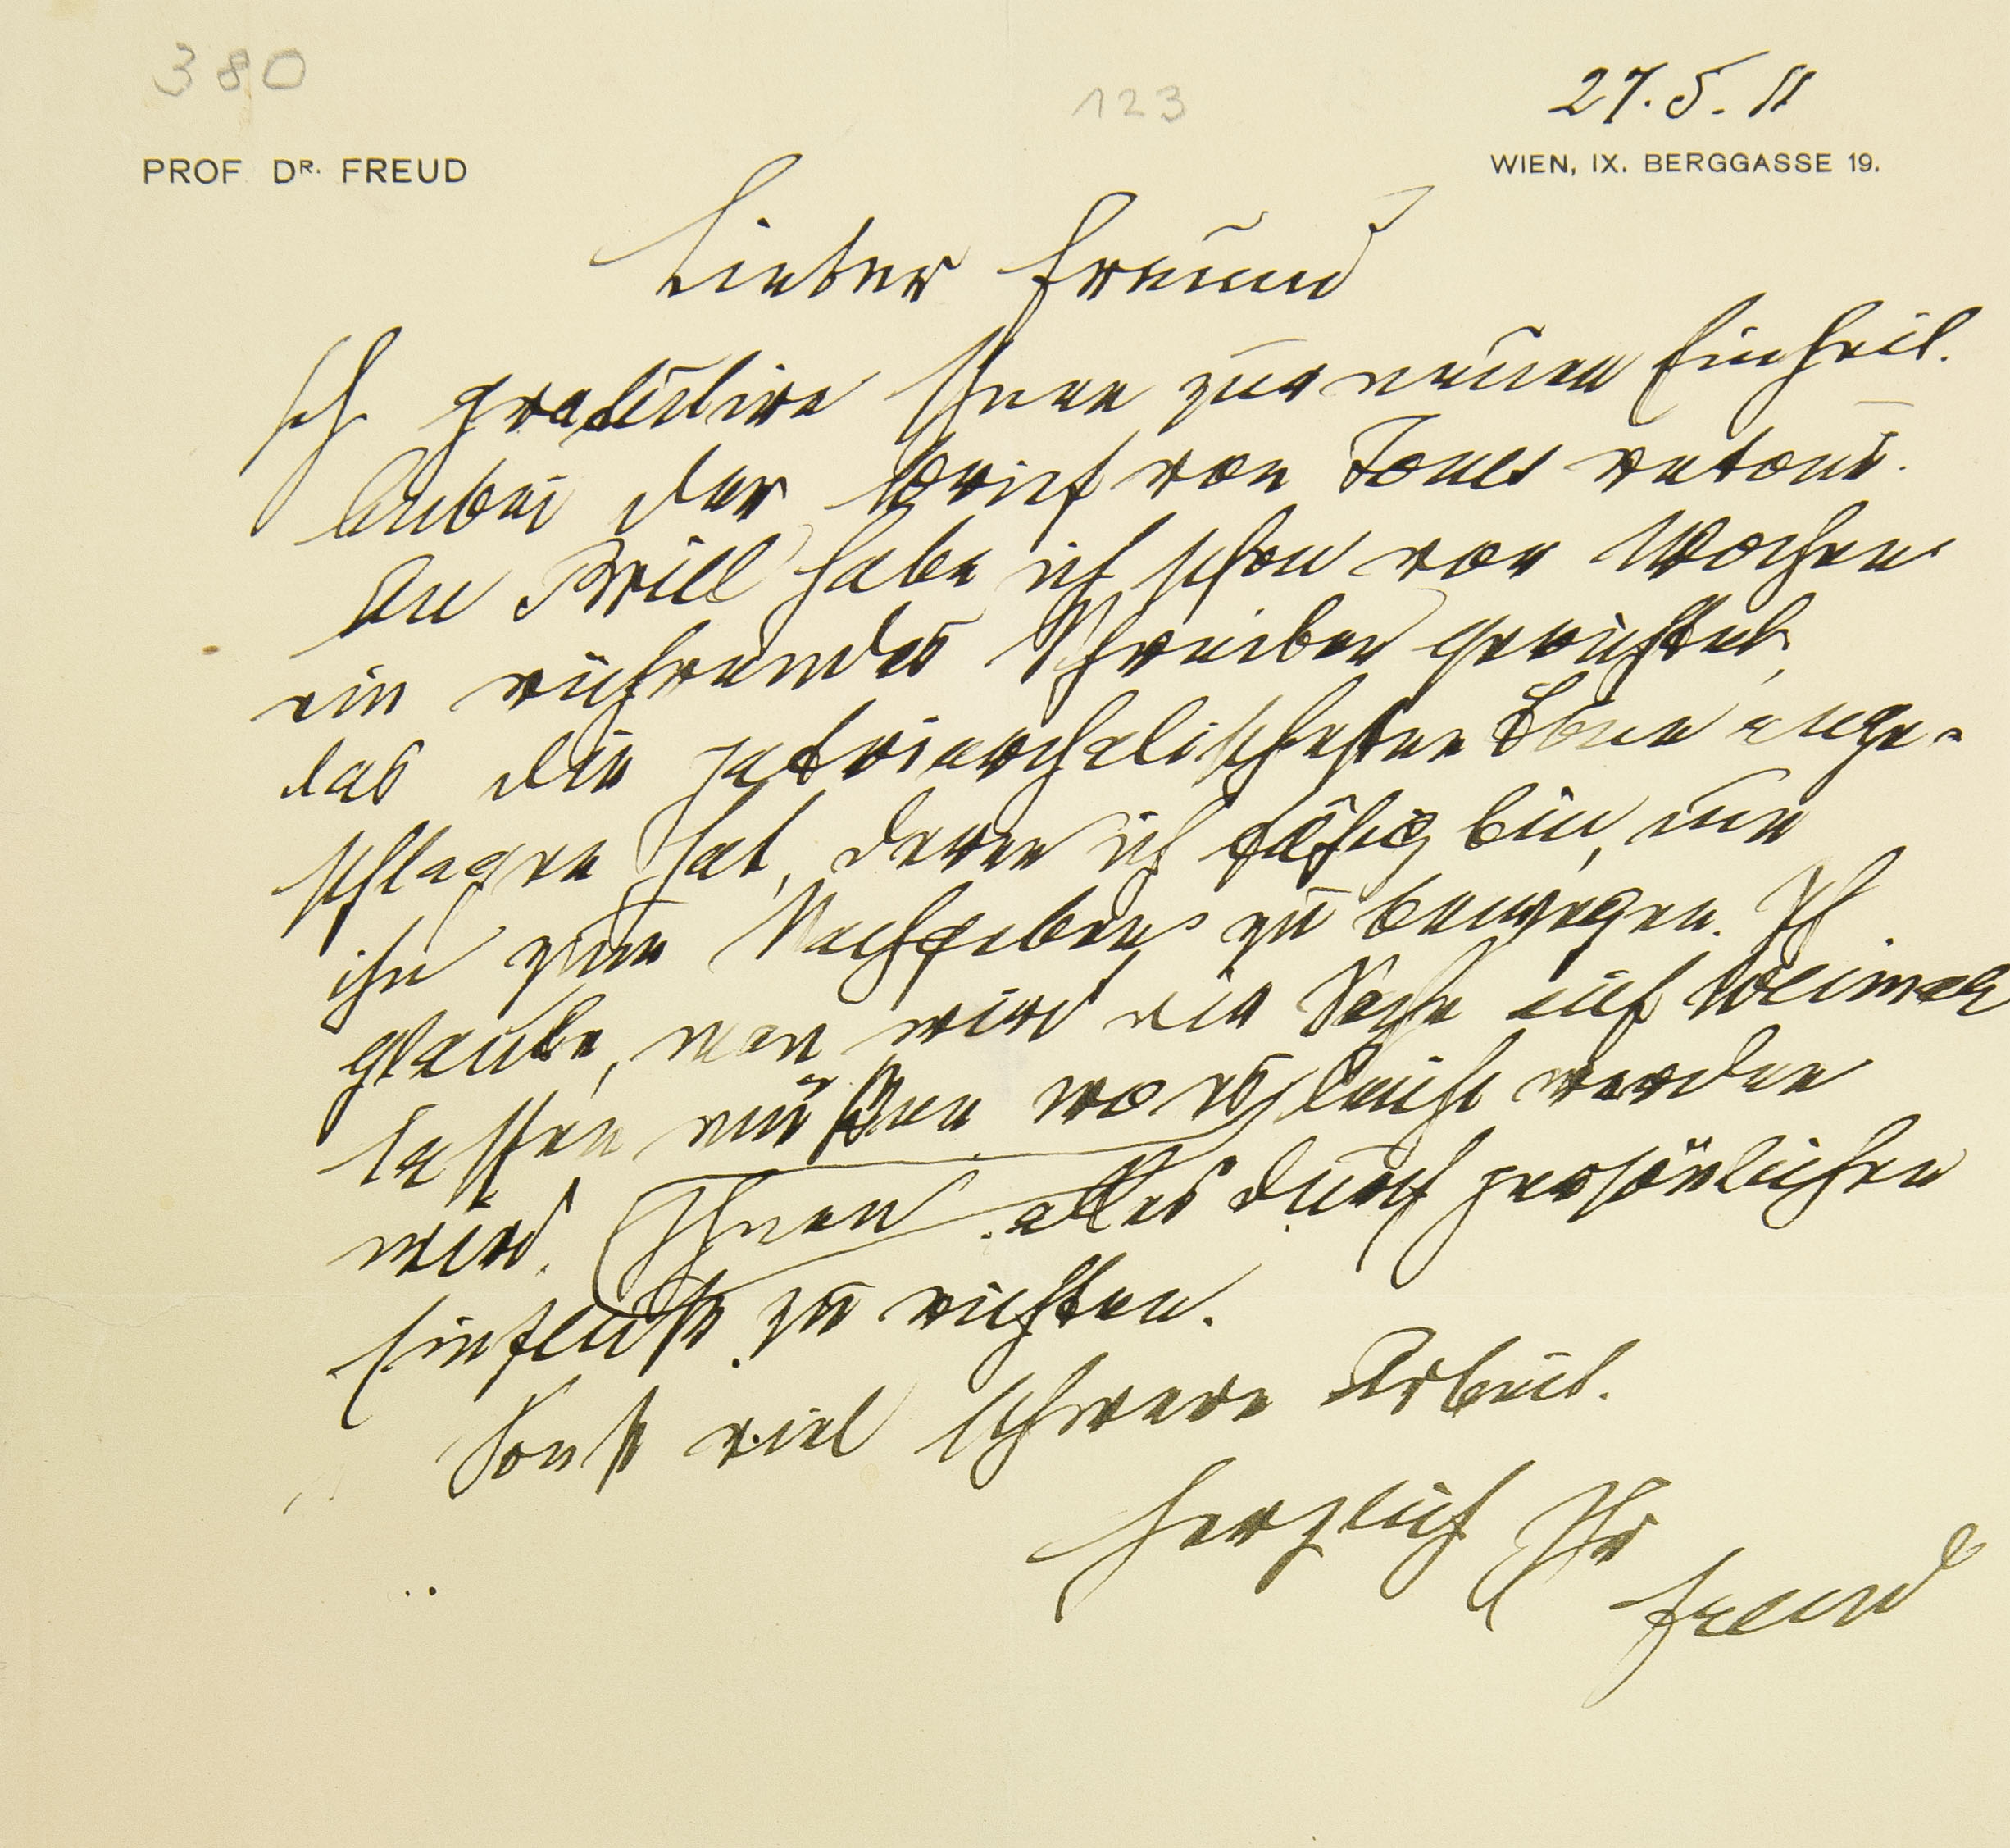 380
123
27.5.11
PROF. DR. FREUD
WIEN, IX. BERGGASSE 19.
Lieber Freund
Ich gratulire Ihnen zur neuen Einheit.
Anbei der Brief von Jones retour.
An Brill habe ich schon vor Wochen
ein rührendes Schreiben gerichtet,
das die patriarchalischesten Töne ange-
schlagen hat, deren ich fähig bin, um
ihn zum Nachgeben zu bewegen. Ich
glaube, man wird die Sache auf Weimar
lassen müssen, wo es leicht werden
wird, Ihnen alles durch persönlichen
Einfluß zu richten.
Sonst viel schwere Arbeit.
Herzlich Ihr
Freud